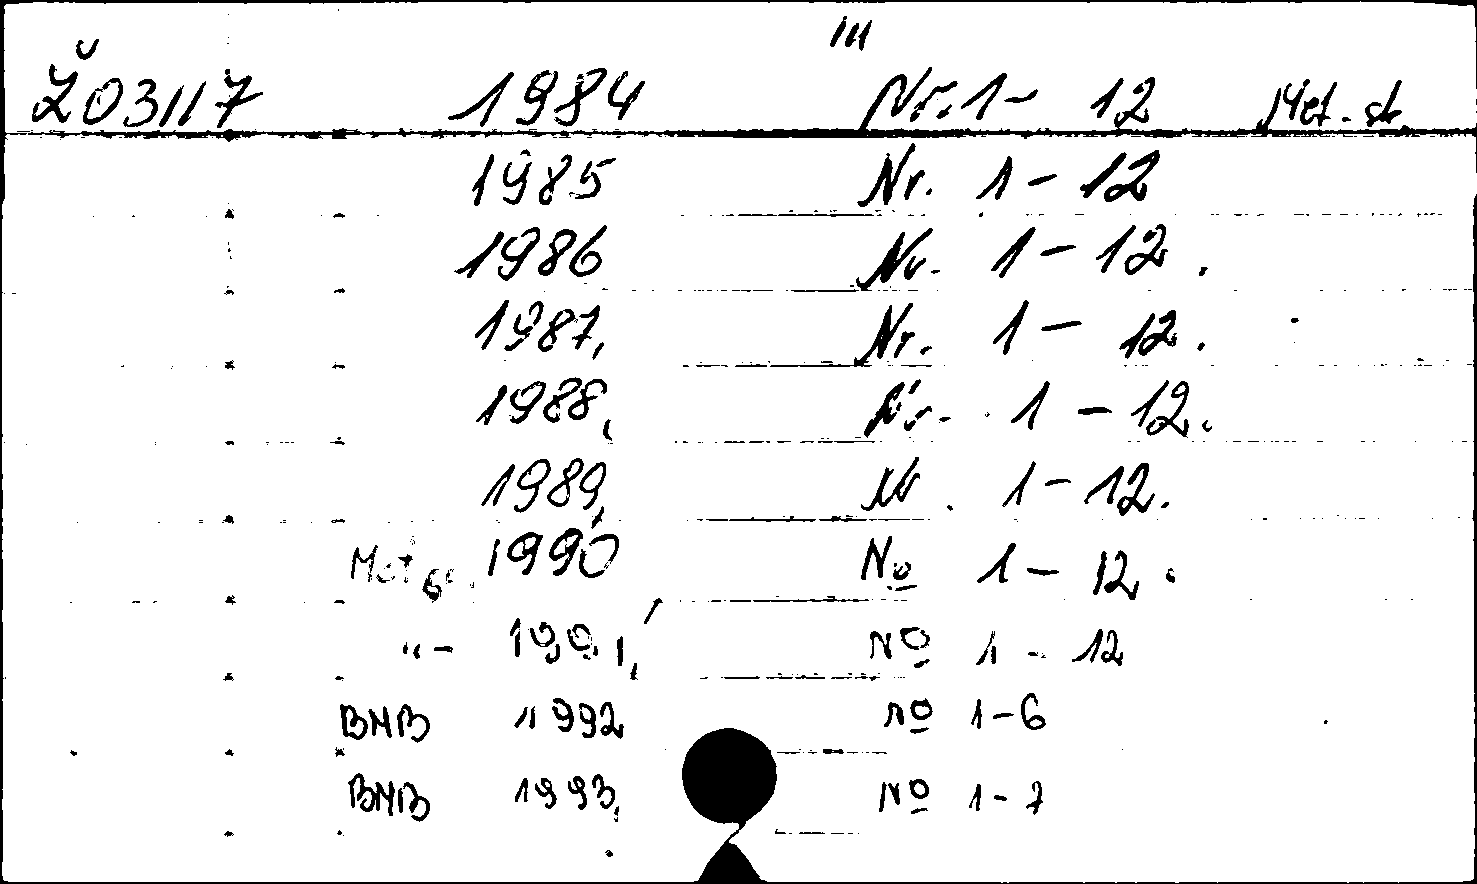 III
Ž03117 1984 Nr. 1 - 12 Met. sk.
1985 Nr. 1 - 12
1986 Nr. 1 - 12.
1987, Nr. 1 - 12.
1988, Nr. 1 - 12.
1989, Nr. 1 - 12.
1990 № 1 - 12.
"- 1991, № 1 - 12
BMB 1992 № 1-6
BMB 1993, № 1-7